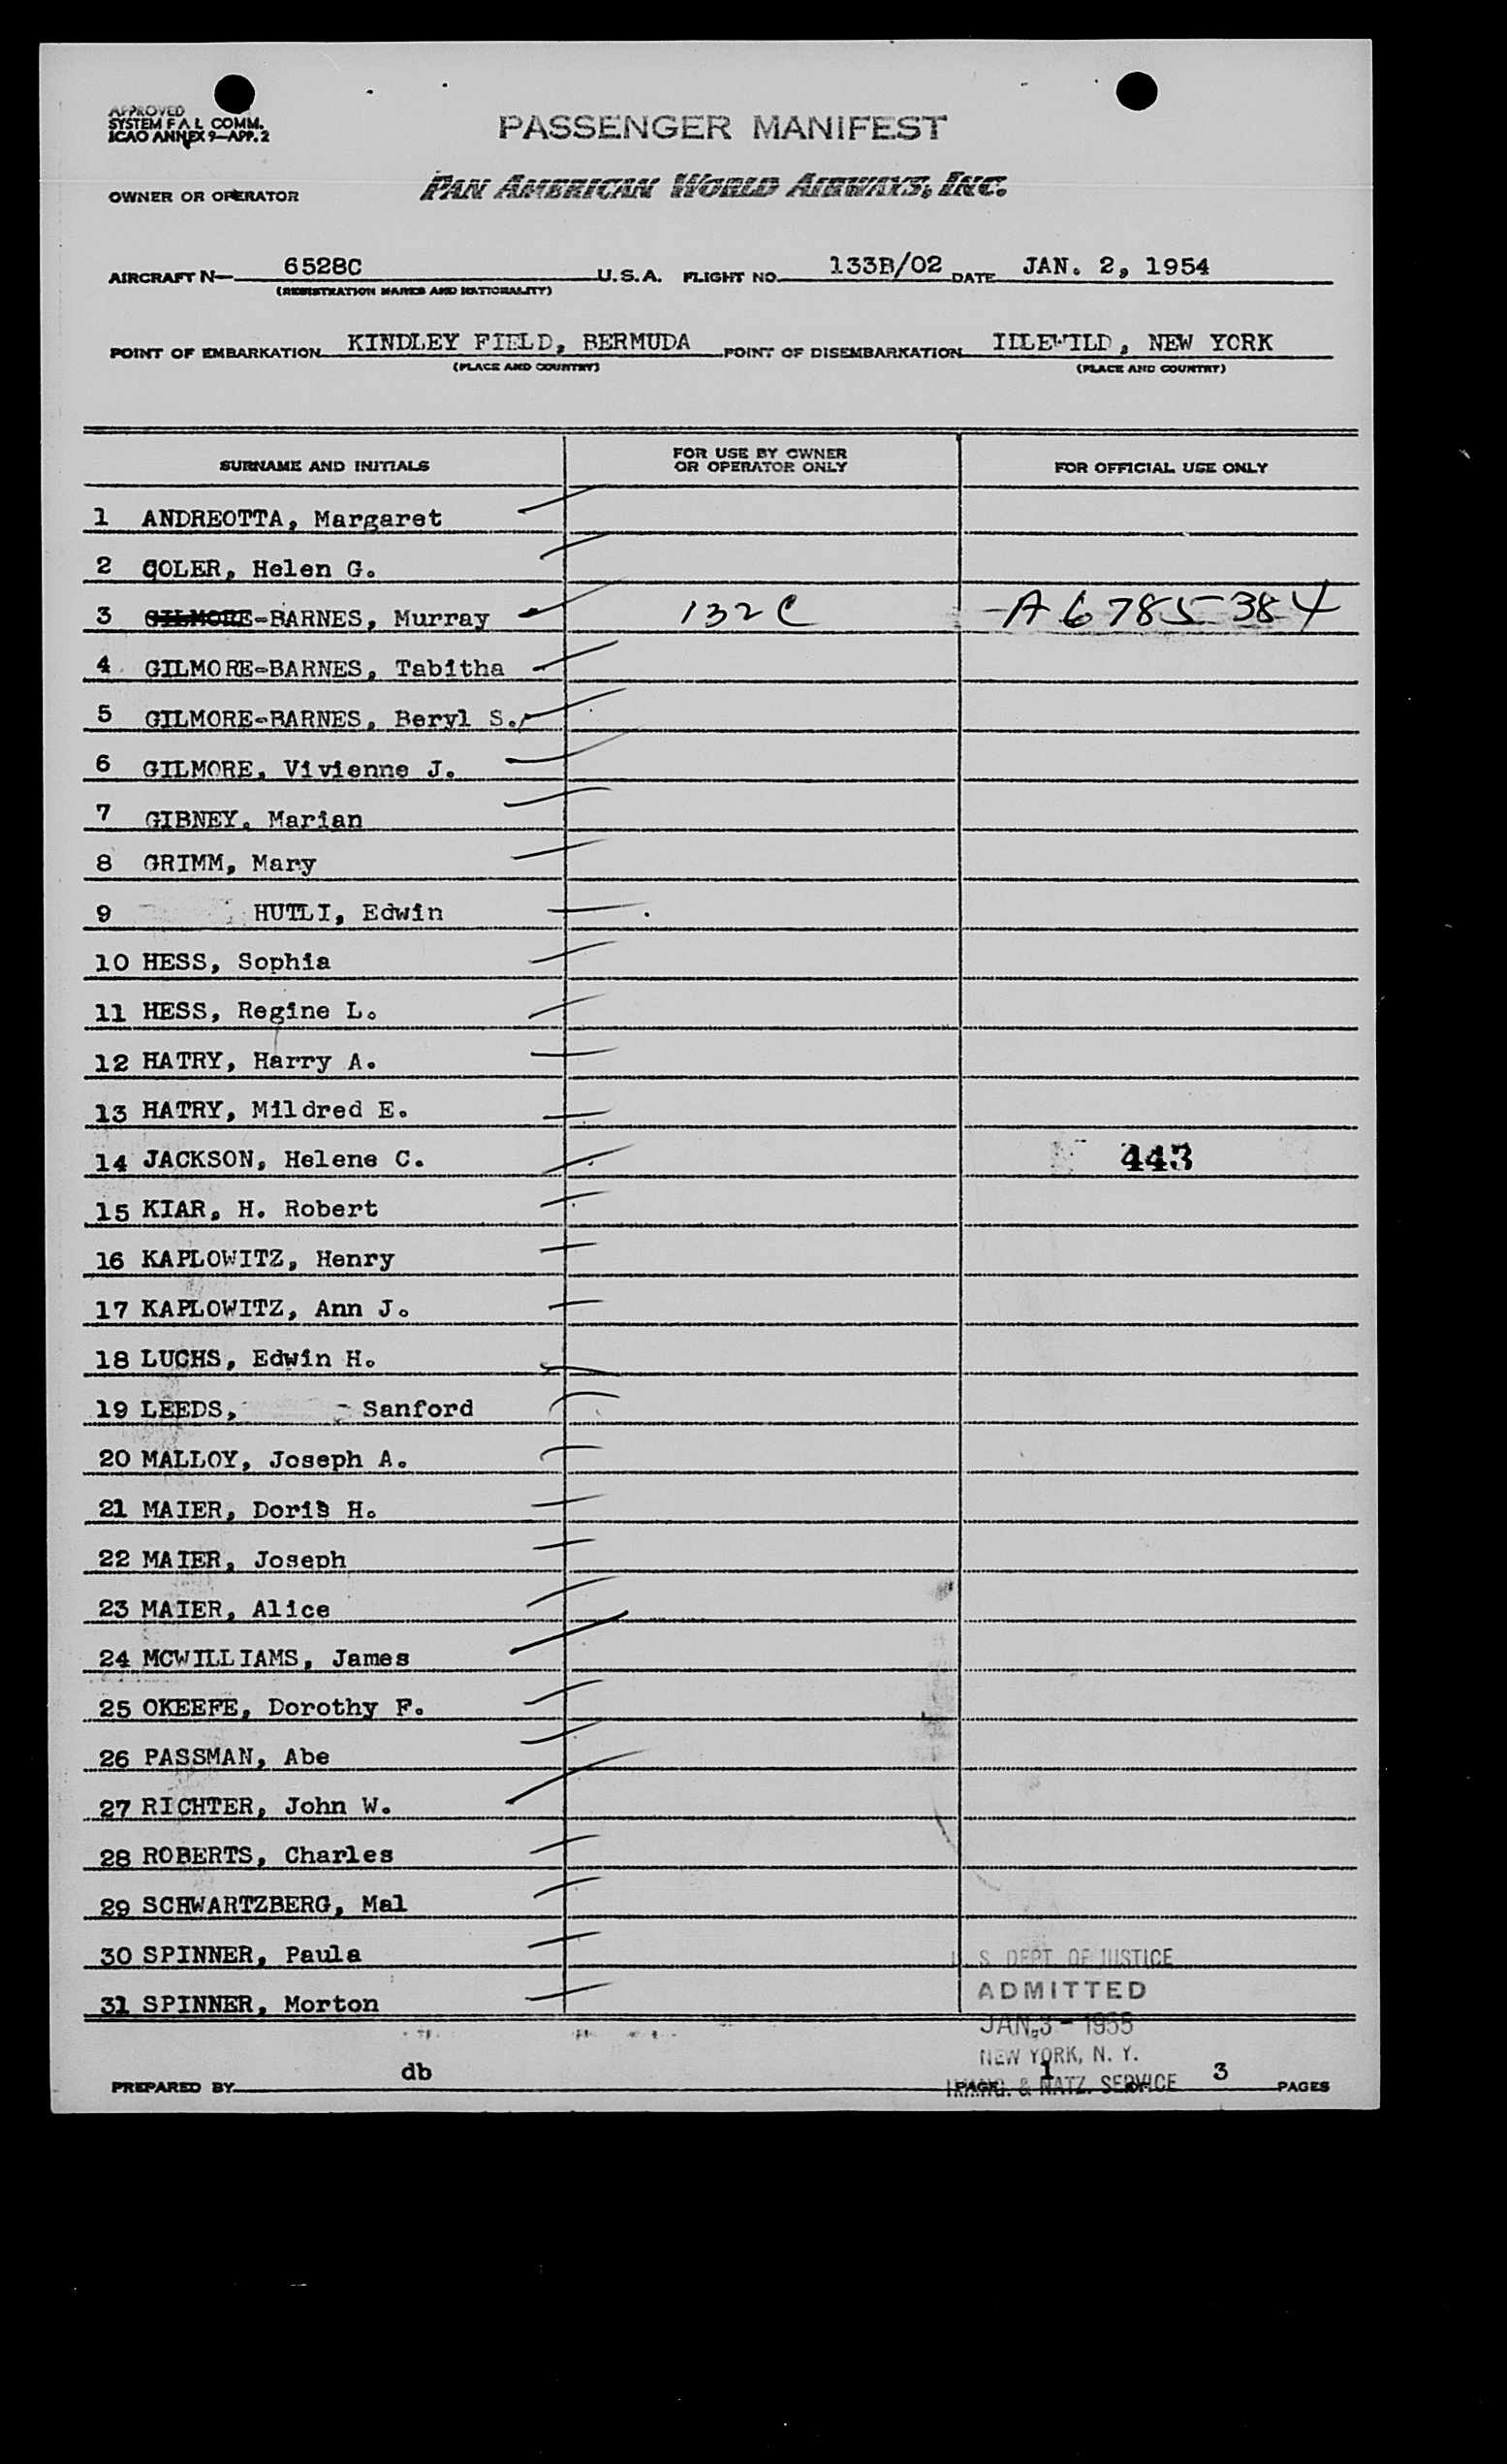 APPROVED
SYSTEM F A L COMM.
ICAO ANNEX 9—APP. 2
PASSENGER MANIFEST
OWNER OR OPERATOR PAN AMERICAN WORLD AIRWAYS, INC.
AIRCRAFT N— 6528C U.S.A. FLIGHT NO. 133B/02 DATE JAN. 2, 1954
(REGISTRATION MARKS AND NATIONALITY)
POINT OF EMBARKATION KINDLEY FIELD, BERMUDA POINT OF DISEMBARKATION IDLEWILD, NEW YORK
(PLACE AND COUNTRY) (PLACE AND COUNTRY)
SURNAME AND INITIALS FOR USE BY OWNER OR OPERATOR ONLY FOR OFFICIAL USE ONLY
1 ANDREOTTA, Margaret
2 COLER, Helen G.
3 GILMORE-BARNES, Murray 132C A6785384
4 GILMORE-BARNES, Tabitha
5 GILMORE-BARNES, Beryl S.
6 GILMORE, Vivienne J.
7 GIBNEY, Marian
8 GRIMM, Mary
9 HUTLI, Edwin
10 HESS, Sophia
11 HESS, Regine L.
12 HATRY, Harry A.
13 HATRY, Mildred E.
14 JACKSON, Helene C. 443
15 KIAR, H. Robert
16 KAPLOWITZ, Henry
17 KAPLOWITZ, Ann J.
18 LUCHS, Edwin H.
19 LEEDS, Sanford
20 MALLOY, Joseph A.
21 MAIER, Doris H.
22 MAIER, Joseph
23 MAIER, Alice
24 MCWILLIAMS, James
25 OKEEFE, Dorothy F.
26 PASSMAN, Abe
27 RICHTER, John W.
28 ROBERTS, Charles
29 SCHWARTZBERG, Mal
30 SPINNER, Paula
31 SPINNER, Morton
U. S. DEPT. OF JUSTICE
ADMITTED
JAN. 3 - 1955
NEW YORK, N. Y.
IMMIG. & NATZ. SERVICE
PREPARED BY db PAGE 1 OF 3 PAGES